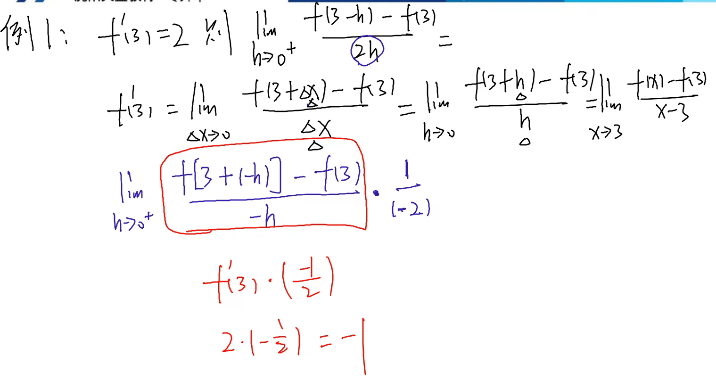 例1: f'(3)=2 则 lim h→0⁺ f(3-h)-f(3) / 2h =
f'(3) = lim Δx→0 f(3+Δx)-f(3) / Δx = lim h→0 f(3+h)-f(3) / h = lim x→3 f(x)-f(3) / x-3
lim h→0⁺ f[3+(-h)]-f(3) / -h · 1 / (-2)
f'(3)·(-1/2)
2·(-1/2) = -1